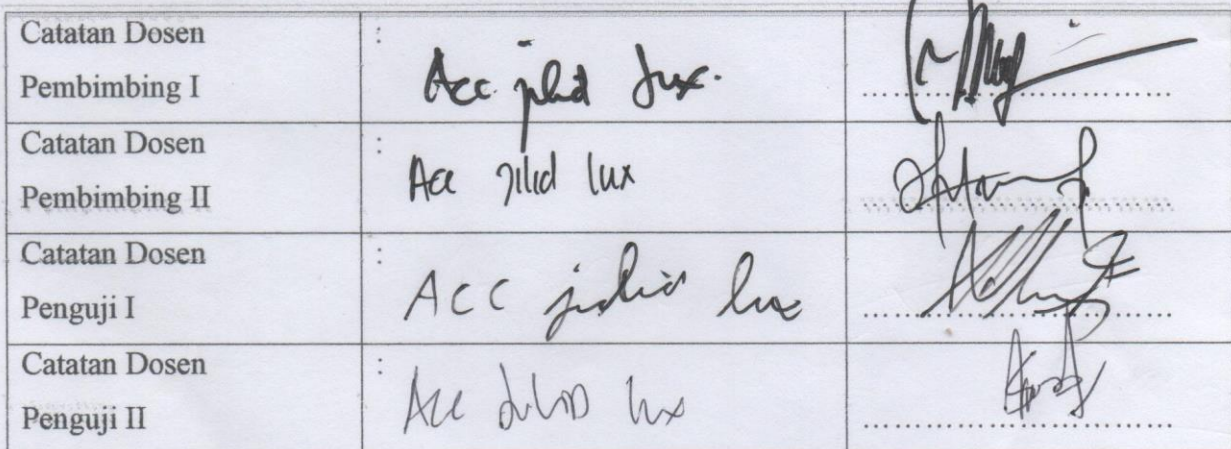 Catatan Dosen
Pembimbing I
: Acc jilid lux.
Catatan Dosen
Pembimbing II
: Acc jilid lux
Catatan Dosen
Penguji I
: ACC jilid lux
Catatan Dosen
Penguji II
: Acc jilid lux